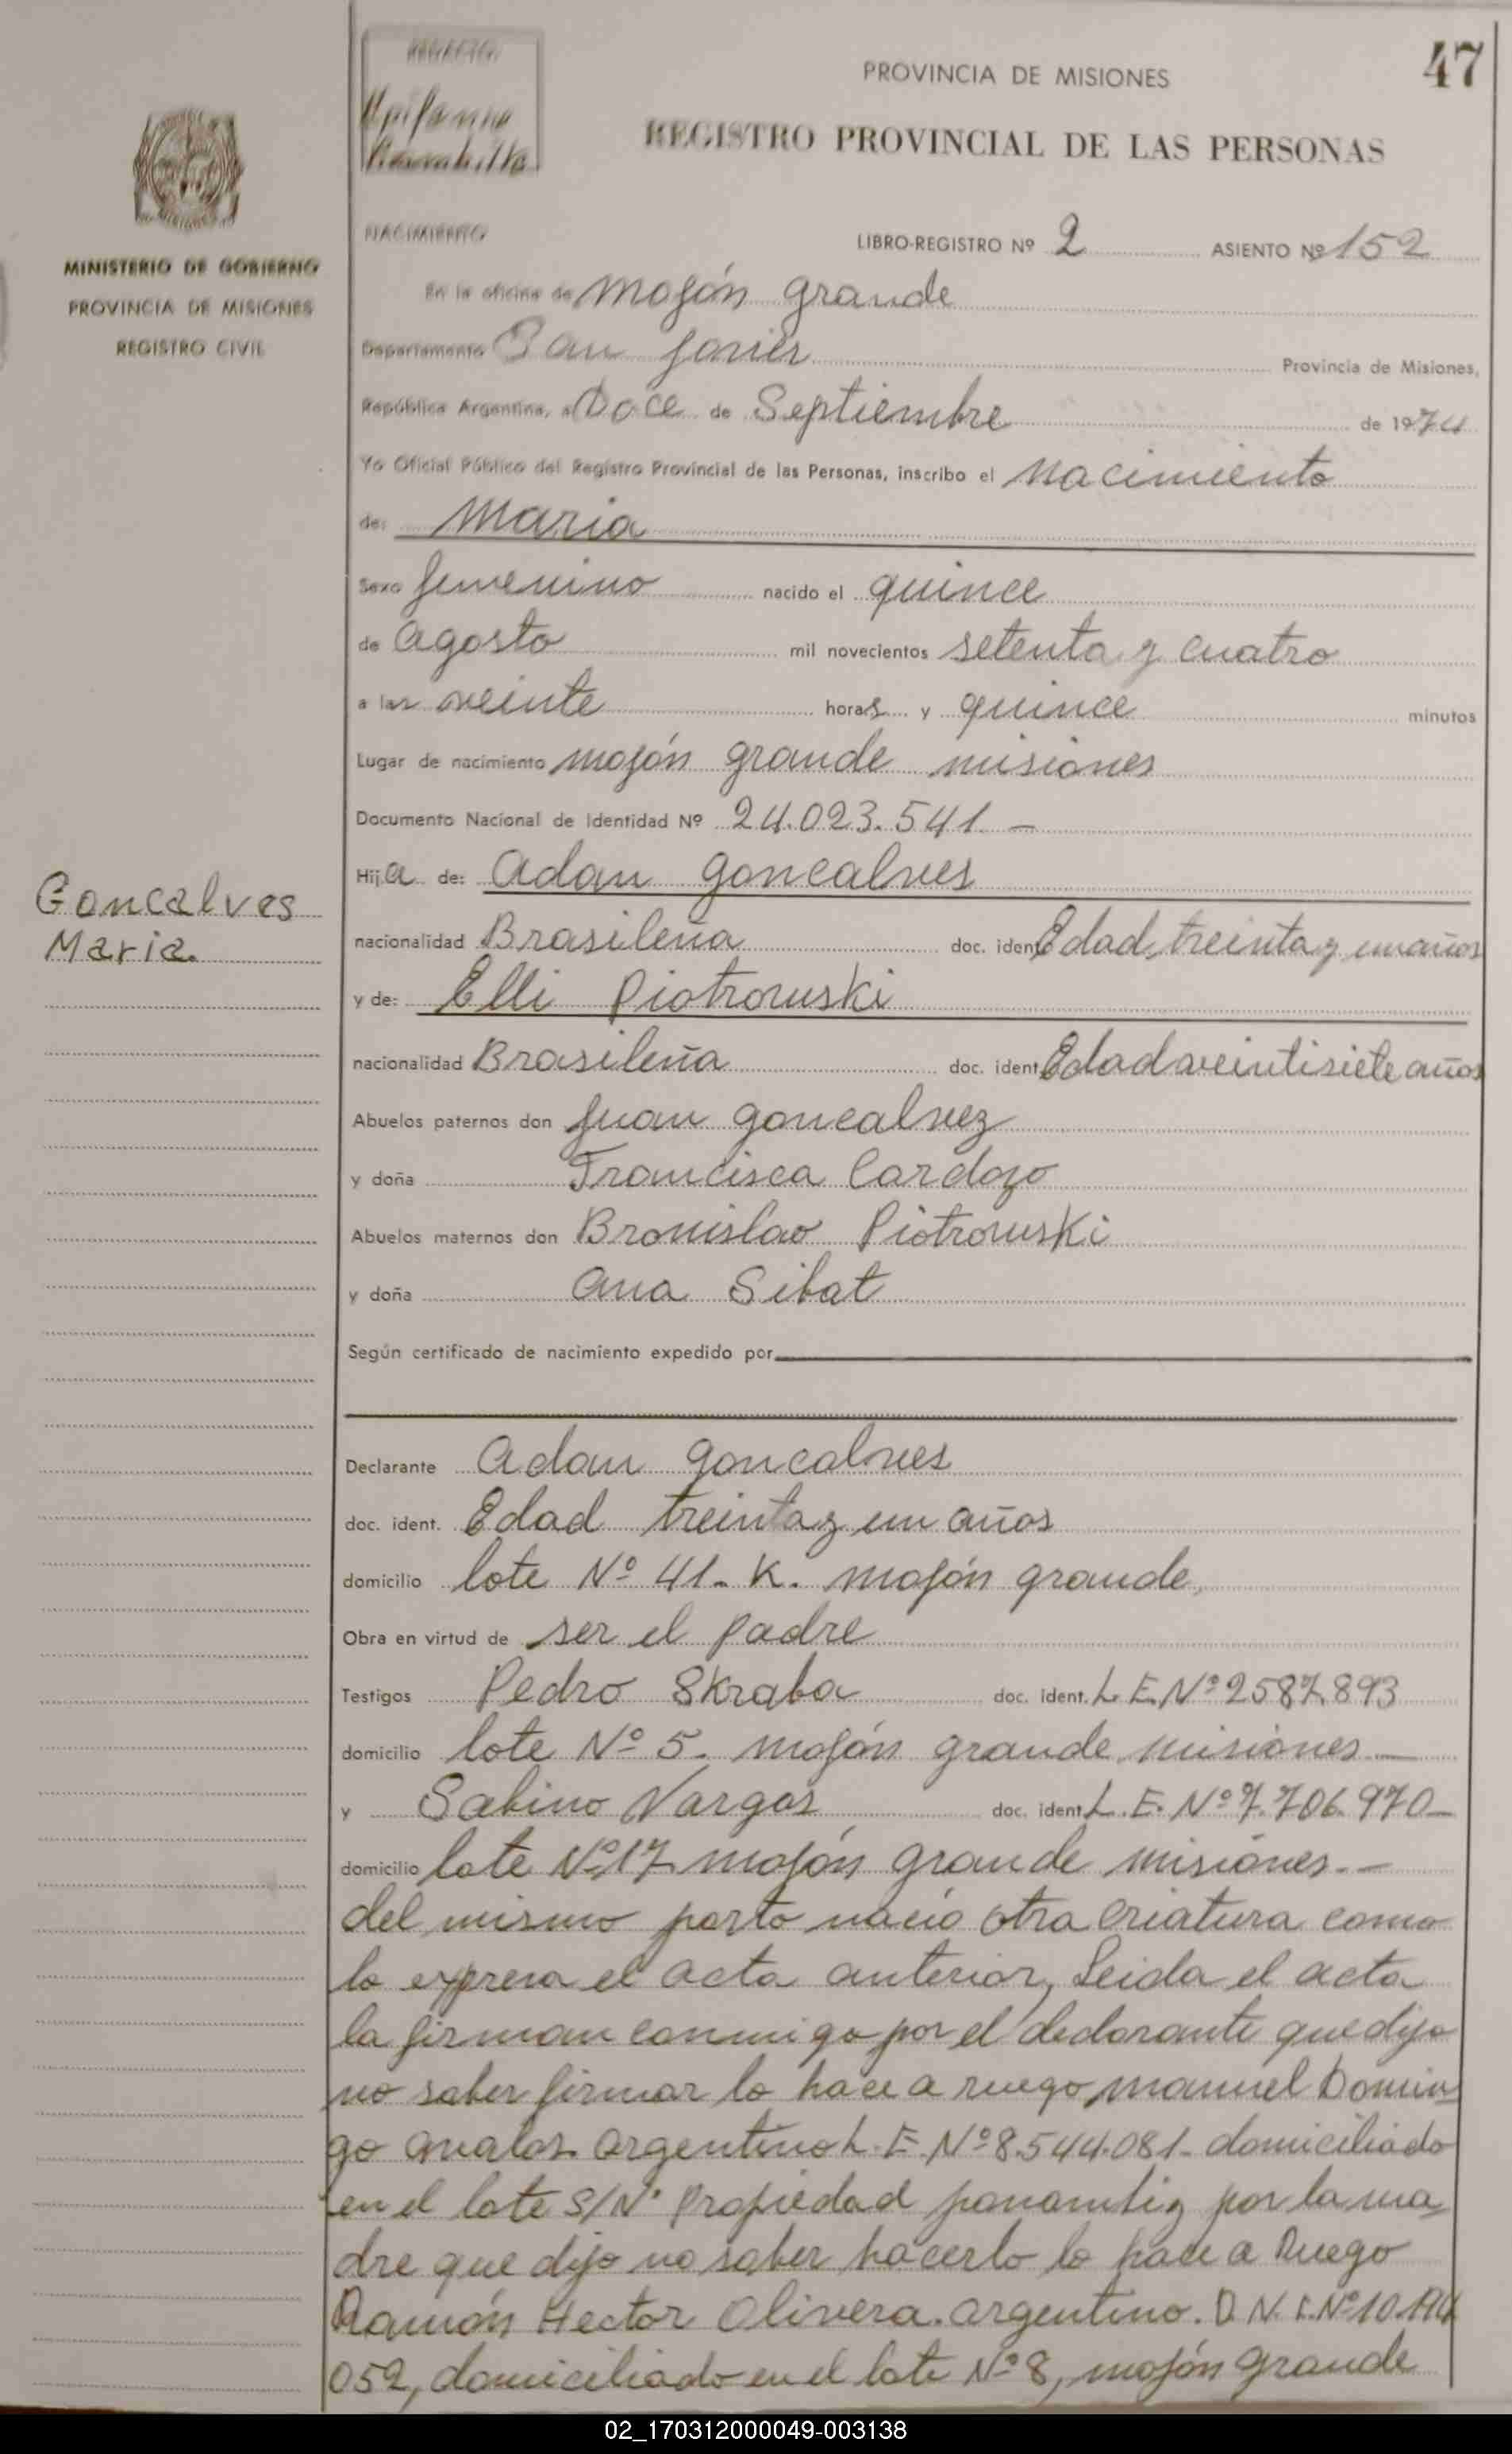 47
PROVINCIA DE MISIONES
REGISTRO PROVINCIAL DE LAS PERSONAS
MINISTERIO DE GOBIERNO
PROVINCIA DE MISIONES
REGISTRO CIVIL
NACIMIENTO
LIBRO-REGISTRO Nº 2 ASIENTO Nº 152
En la oficina de Mojón grande
Departamento San Javier Provincia de Misiones,
República Argentina, a Doce de Septiembre de 1974
Yo Oficial Público del Registro Provincial de las Personas, inscribo el Nacimiento
de: Maria
Sexo femenino nacido el quince
de Agosto mil novecientos setenta y cuatro
a las veinte horas y quince minutos
Lugar de nacimiento Mojón grande misiones
Documento Nacional de Identidad Nº 24.023.541 -
Hija de: Adan goncalves
Goncalves
Maria.
nacionalidad Brasileña doc. ident. Edad, treinta y un años
y de: Elli Piotrowski
nacionalidad Brasileña doc. ident. Edad veintisiete años
Abuelos paternos don Juan goncalvez
y doña Francisca Cardozo
Abuelos maternos don Bronislao Piotrowski
y doña Ana Sibat
Según certificado de nacimiento expedido por
Declarante Adan goncalves
doc. ident. Edad treinta y un años
domicilio lote Nº 41. K. mojón grande,
Obra en virtud de ser el padre
Testigos Pedro Skraba doc. ident. L.E. Nº 2587893
domicilio lote Nº 5. mojón grande misiones -
y Sabino Vargas doc. ident. L.E. Nº 7.706.970 -
domicilio lote Nº 17 mojón grande misiones. -
del mismo parto nació otra criatura como
lo expresa el acta anterior, Leida el acta
la firman conmigo por el declarante que dijo
no saber firmar lo hace a ruego manuel Domin
go Avalos argentino L.E. Nº 8.544.081 - domiciliado
en el lote S/Nº Propiedad y por la ma
dre que dijo no saber hacerlo lo hace a Ruego
Ramón Hector Olivera. argentino. D.N.I. Nº 10.
052, domiciliado en el lote Nº 8, mojón grande
02_170312000049-003138